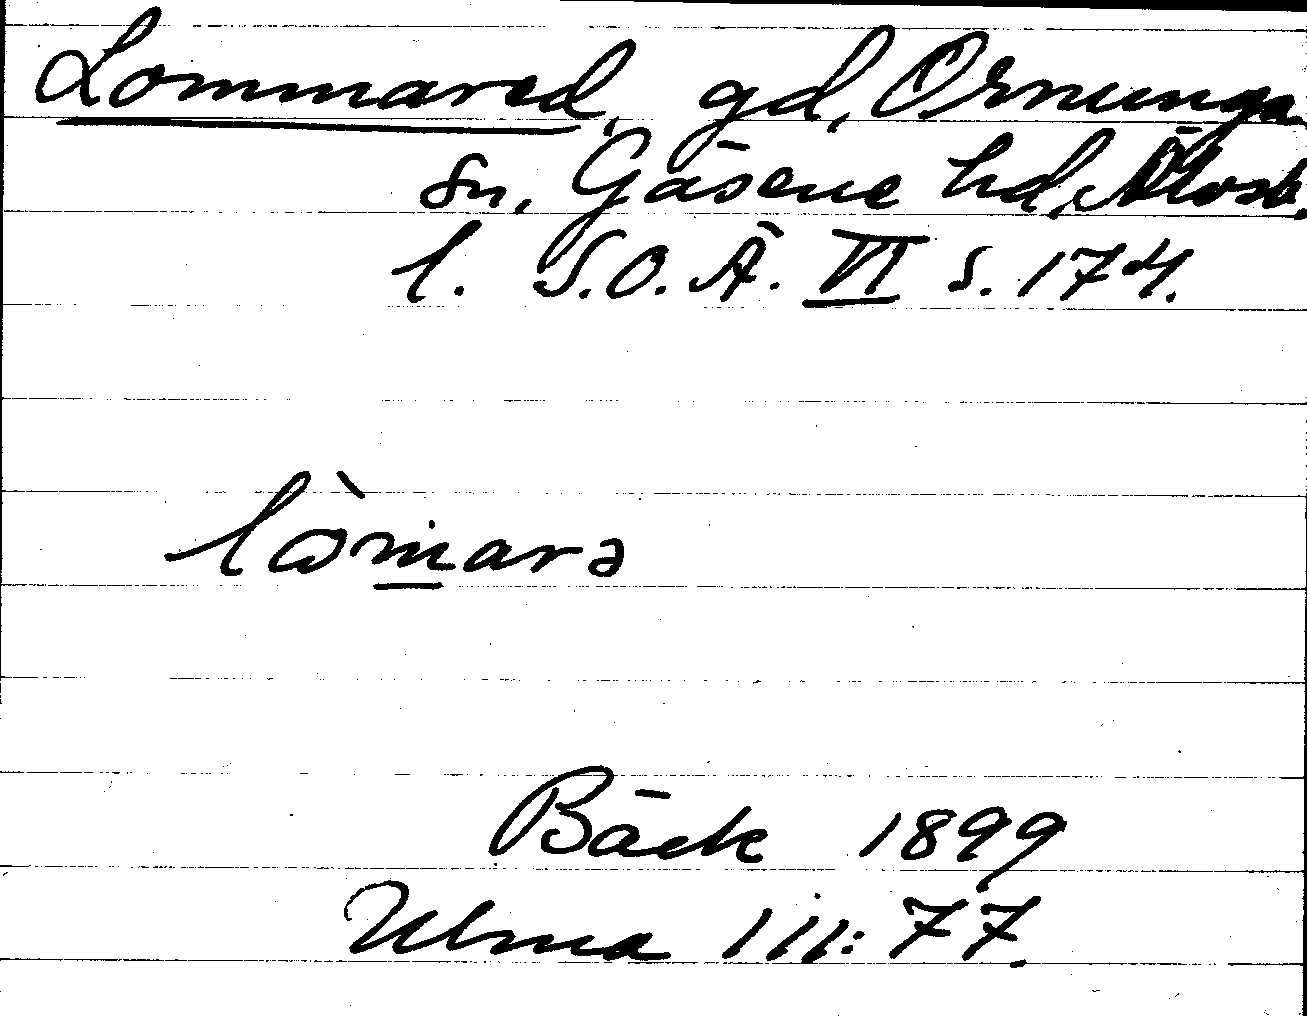 Lommared, gd, Ornunga
sn, Gäsene hd, Älvsb.
l. S.O.Ä. VI s. 174.
lòm̲arə
Bäck 1899
Ulma 111:77.